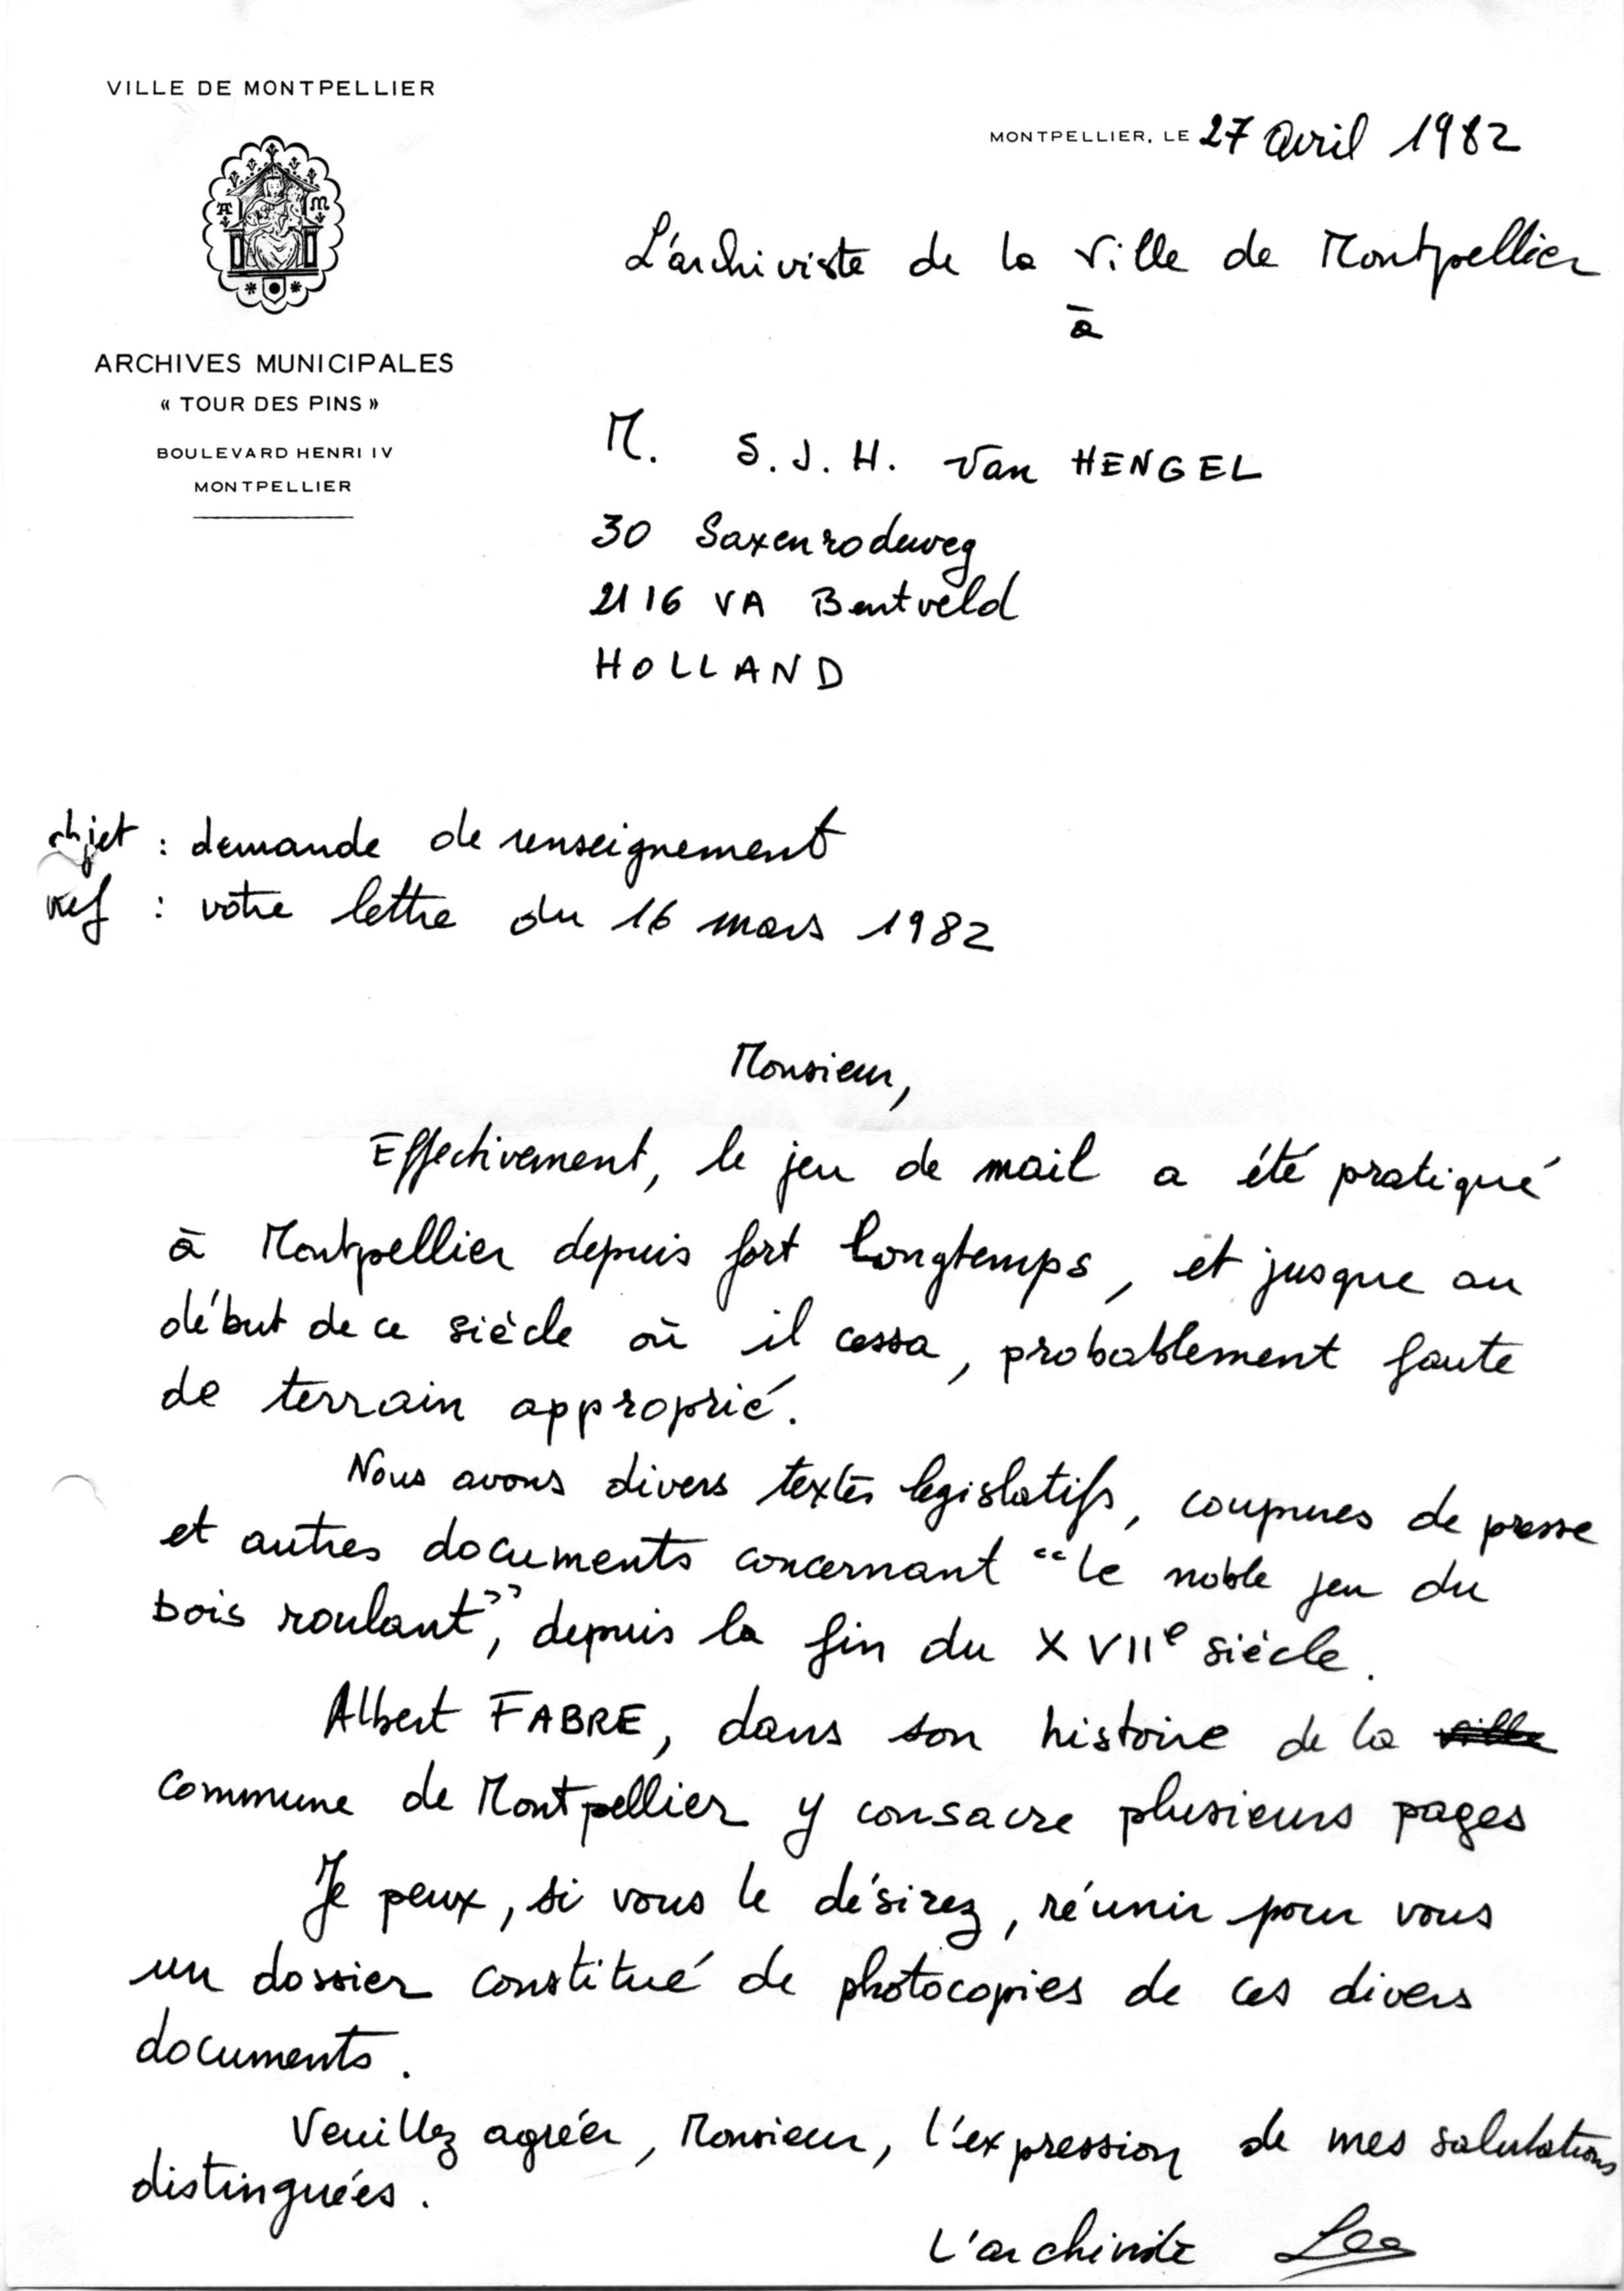 VILLE DE MONTPELLIER
A M
ARCHIVES MUNICIPALES
« TOUR DES PINS »
BOULEVARD HENRI IV
MONTPELLIER
MONTPELLIER, LE 27 avril 1982
L'archiviste de la Ville de Montpellier
à
M. S.J.H. van HENGEL
30 Saxenrodeweg
2116 VA Bentveld
HOLLAND
objet : demande de renseignement
ref : votre lettre du 16 mars 1982
Monsieur,
Effectivement, le jeu de mail a été pratiqué
à Montpellier depuis fort longtemps, et jusque au
début de ce siècle où il cessa, probablement faute
de terrain approprié.
Nous avons divers textes legislatifs, coupures de presse
et autres documents concernant "le noble jeu du
bois roulant", depuis la fin du XVIIe siècle.
Albert FABRE, dans son histoire de la ville
commune de Montpellier y consacre plusieurs pages
Je peux, si vous le désirez, réunir pour vous
un dossier constitué de photocopies de ces divers
documents.
Veuillez agréer, Monsieur, l'expression de mes salutations
distinguées.
L'archiviste